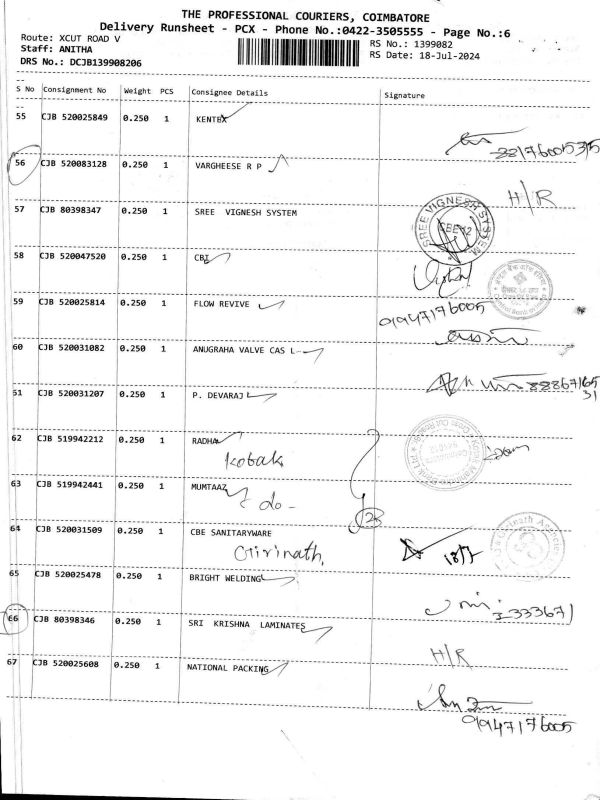 THE PROFESSIONAL COURIERS, COIMBATORE
Delivery Runsheet - PCX - Phone No.:0422-3505555 - Page No.:6
Route: XCUT ROAD V
RS No.: 1399082
Staff: ANITHA
RS Date: 18-Jul-2024
DRS No.: DCJB139908206
S No Consignment No Weight PCS Consignee Details Signature
55 CJB 520025849 0.250 1 KENTEX
56 CJB 520083128 0.250 1 VARGHEESE R P
H/R
57 CJB 80398347 0.250 1 SREE VIGNESH SYSTEM
SREE VIGNESH SYSTEM
58 CJB 520047520 0.250 1 CBI
59 CJB 520025814 0.250 1 FLOW REVIVE
60 CJB 520031082 0.250 1 ANUGRAHA VALVE CAS L
61 CJB 520031207 0.250 1 P. DEVARAJ
62 CJB 519942212 0.250 1 RADHA
Kobak
63 CJB 519942441 0.250 1 MUMTAAZ
do -
64 CJB 520031509 0.250 1 CBE SANITARYWARE
Girinath
18/7
65 CJB 520025478 0.250 1 BRIGHT WELDING
66 CJB 80398346 0.250 1 SRI KRISHNA LAMINATES
H/R
67 CJB 520025608 0.250 1 NATIONAL PACKING